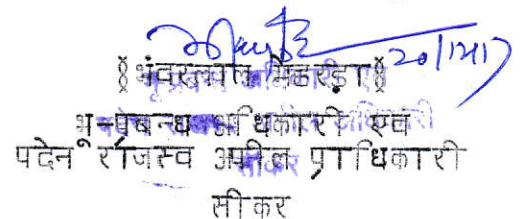 20/12/17
§भंवरलाल मेहरड़ा§
भू-प्रबन्ध अधिकारी एवं
पदेन राजस्व अपील प्राधिकारी
सीकर